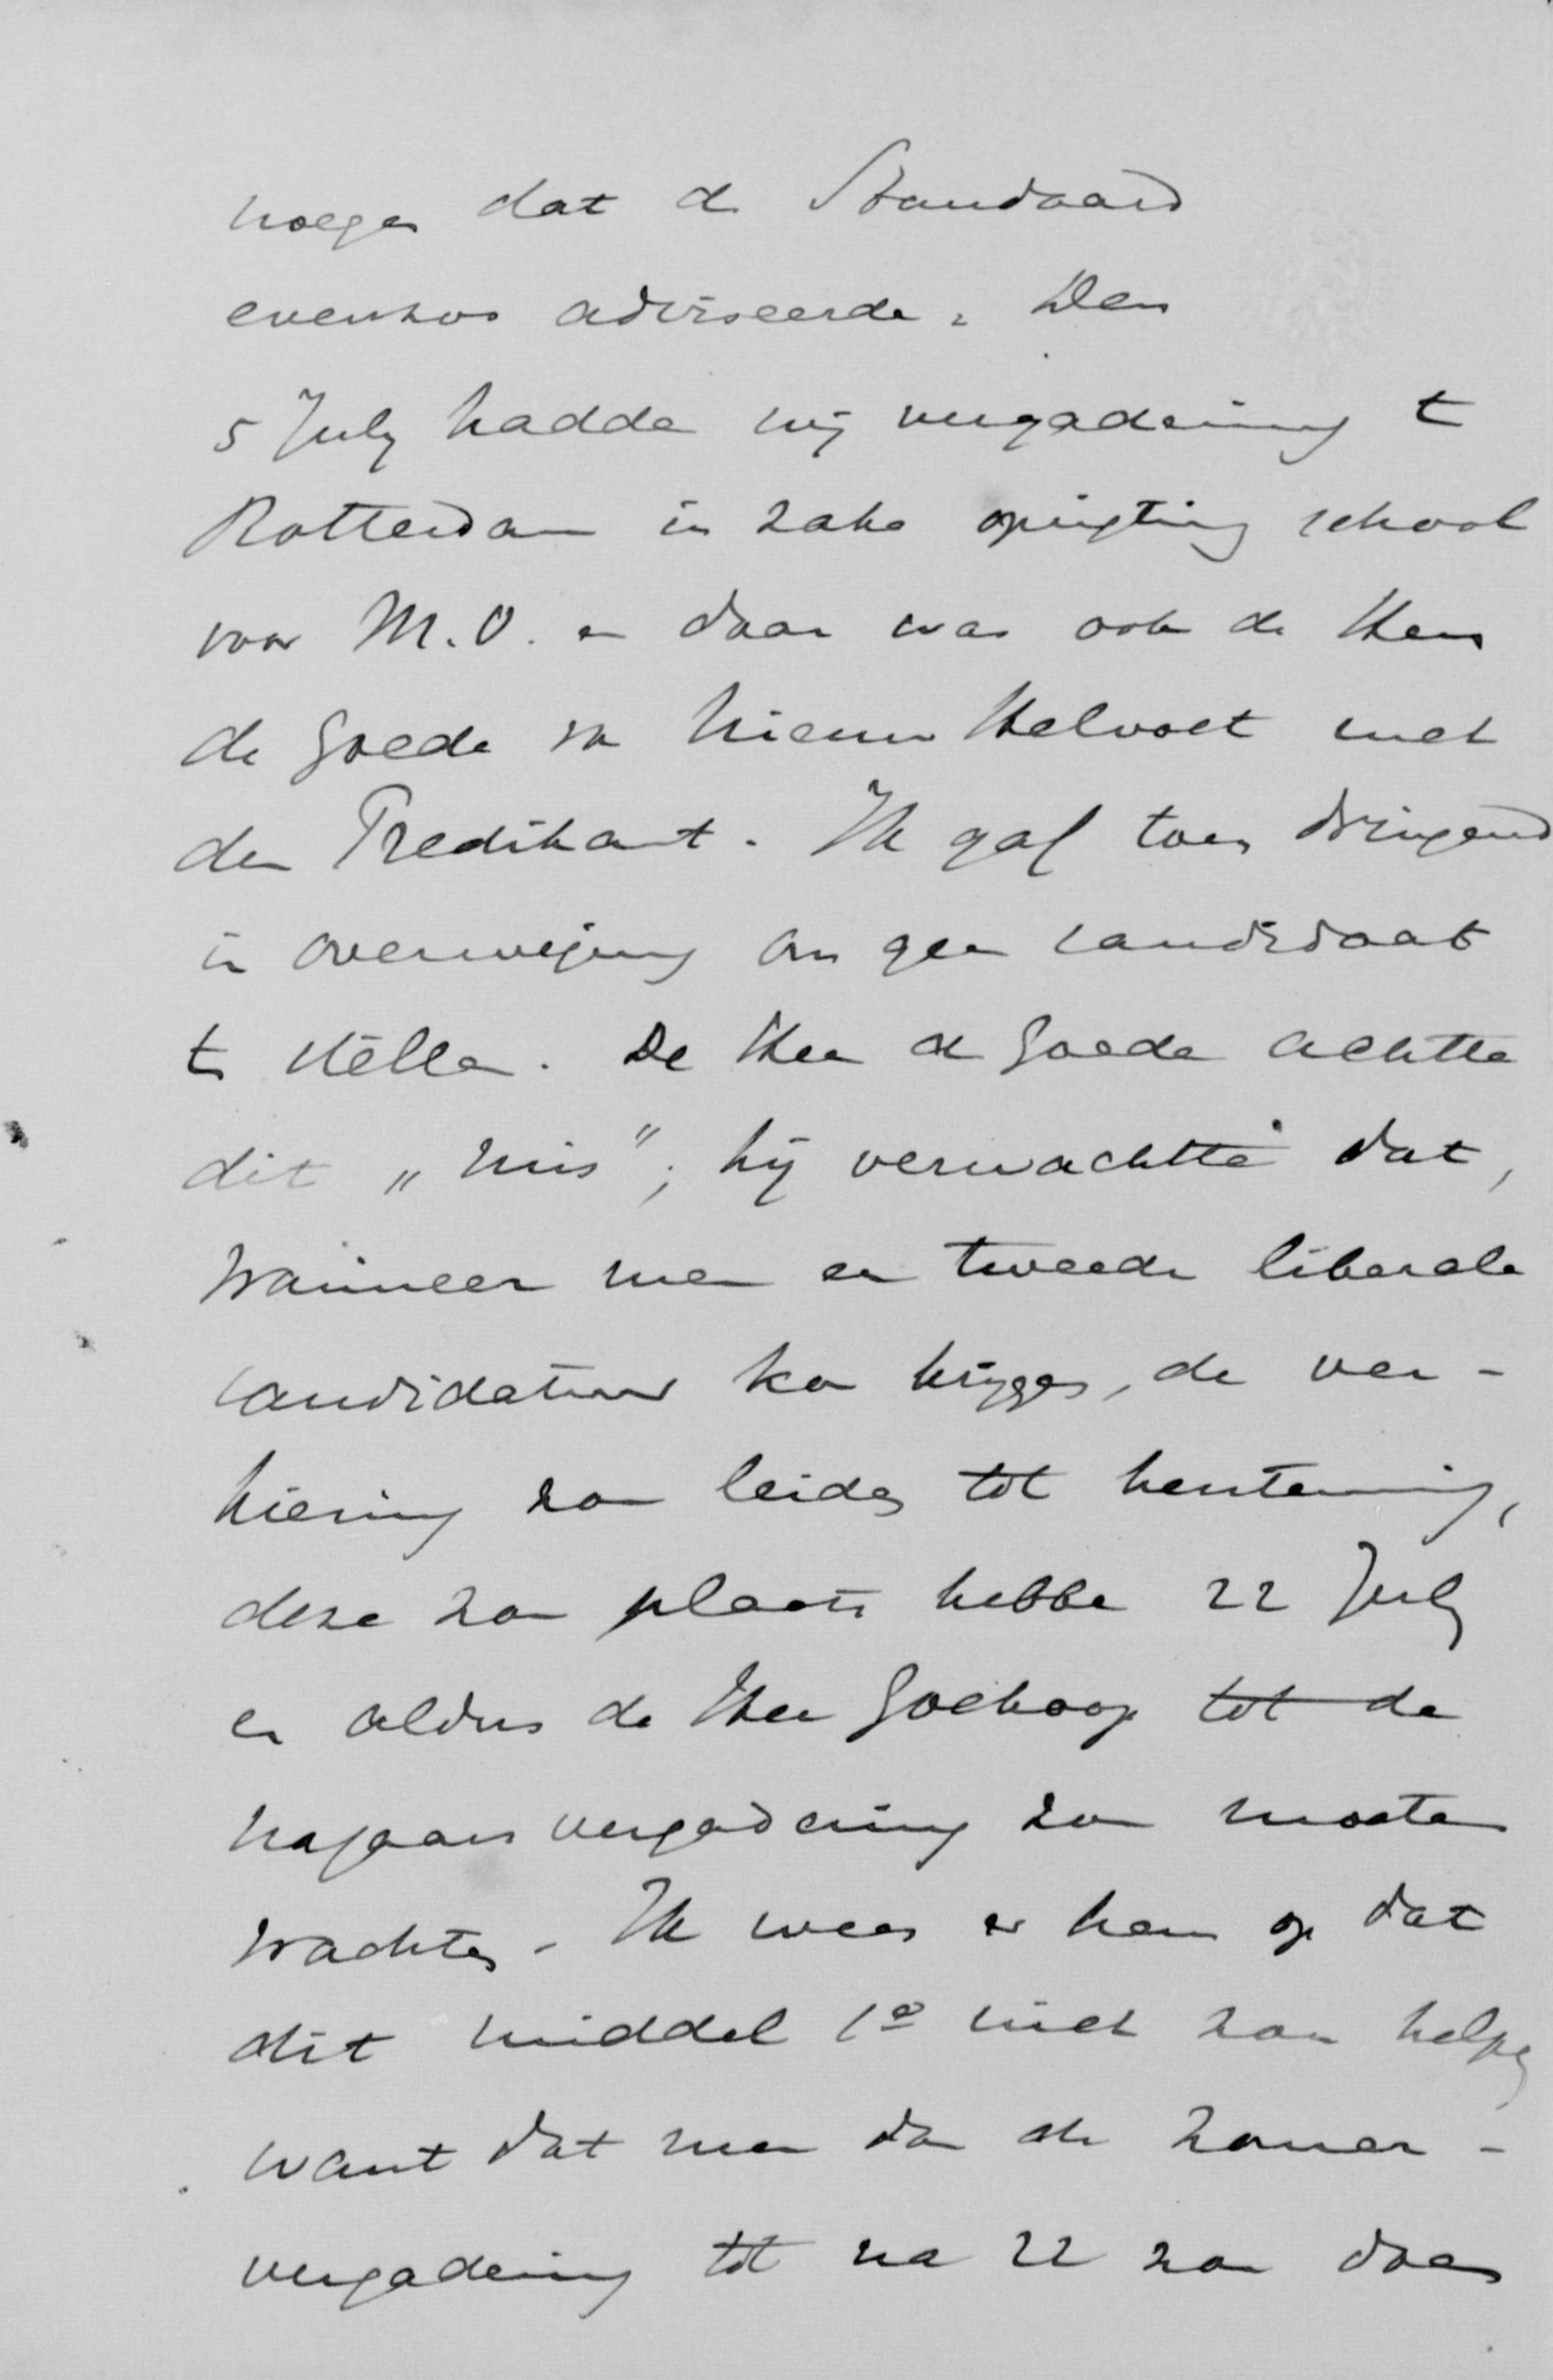 noegen dat de Standaard
evenzoo adviseerde. Den
5 July hadden wij vergadering te
Rotterdam in zake oprigting school
voor M.O. en daar was ook de Heer
de Goede van Nieuw Helvoet met
den Predikant. Ik gaf toen dringend
in overweging om geen candidaat
te stellen. De Heer de Goede achtte
dit „mis"; hij verwachtte dat,
wanneer men een tweede liberale
candidatuur kon krijgen, de ver-
kiezing zou leiden tot herstemming,
deze zou plaats hebben 22 July
en aldus de Heer Goekoop tot de
najaarsvergadering zou moeten
wachten. Ik wees er hem op dat
dit middel 1º niet zou helpen
want dat men dan de zomer-
vergadering tot na 22 zou doen